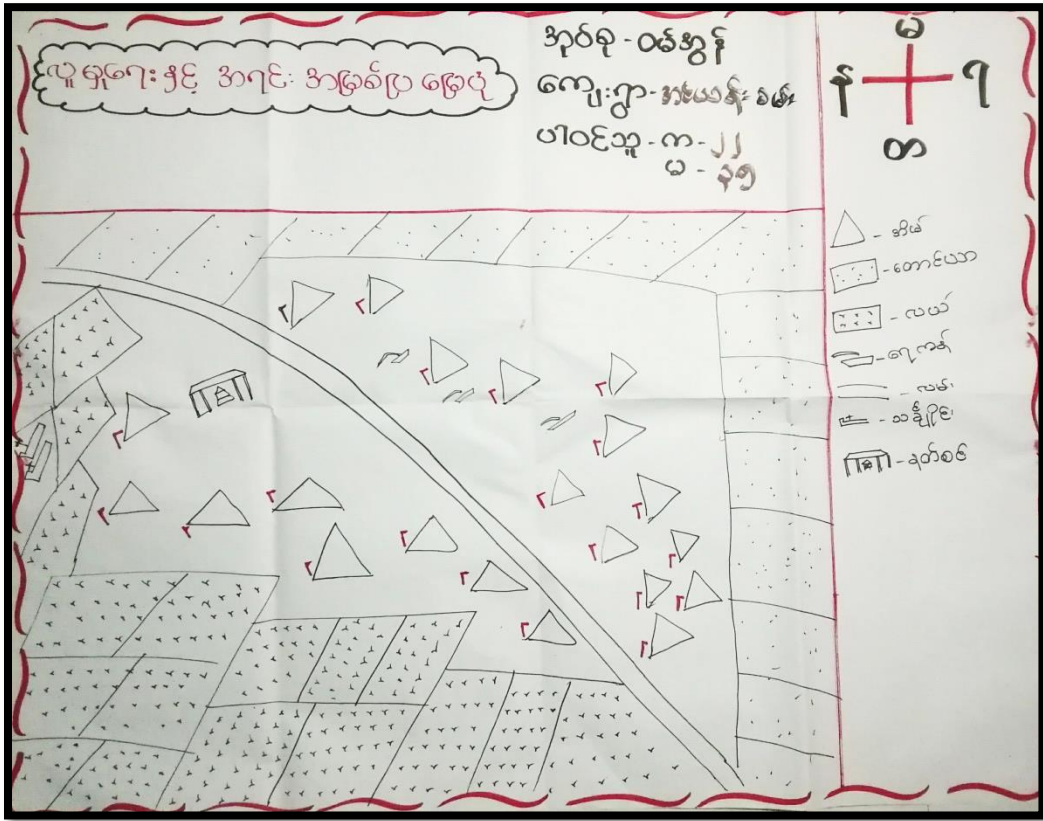 လူမှုရေးနှင့် အရင်းအမြစ်ပြ မြေပုံ
အုပ်စု - ဝမ်အွန်
ကျေးရွာ -
ပါဝင်သူ - ကျ - ၂၂
မ - ၃၅
မ
န
ရ
တ
- အိမ်
- တောင်ယာ
- လယ်
- ရေကန်
- လမ်း
- သင်္ချိုင်း
- နတ်စင်